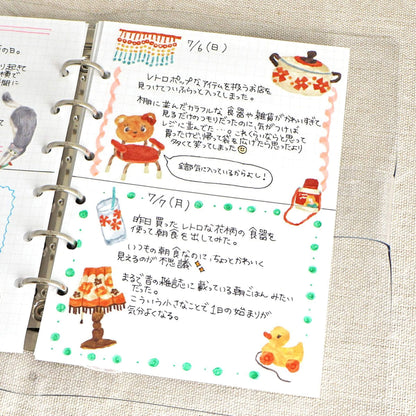 の日。
7/6(日)
レトロポップなアイテムを扱うお店を
見つけてついふらっと入ってしまった。
棚に並んだカラフルな食器や雑貨がかわいすぎて
見るだけのつもりだったのに、気がつけば
レジに並んでた…。これくらいならと思って
買ったけど、帰って袋を広げたら思ったより
多くて笑ってしまった
全部気に入っているからよし!
7/7(月)
昨日買ったレトロな花柄の食器を
使って朝食を出してみた。
いつもの朝食なのに、なぜかかわいく
見えるのが不思議
まるで昔の雑誌に載っている朝ごはんみたい
だった。
こういう小さなことで1日の始まりが
気分よくなる。